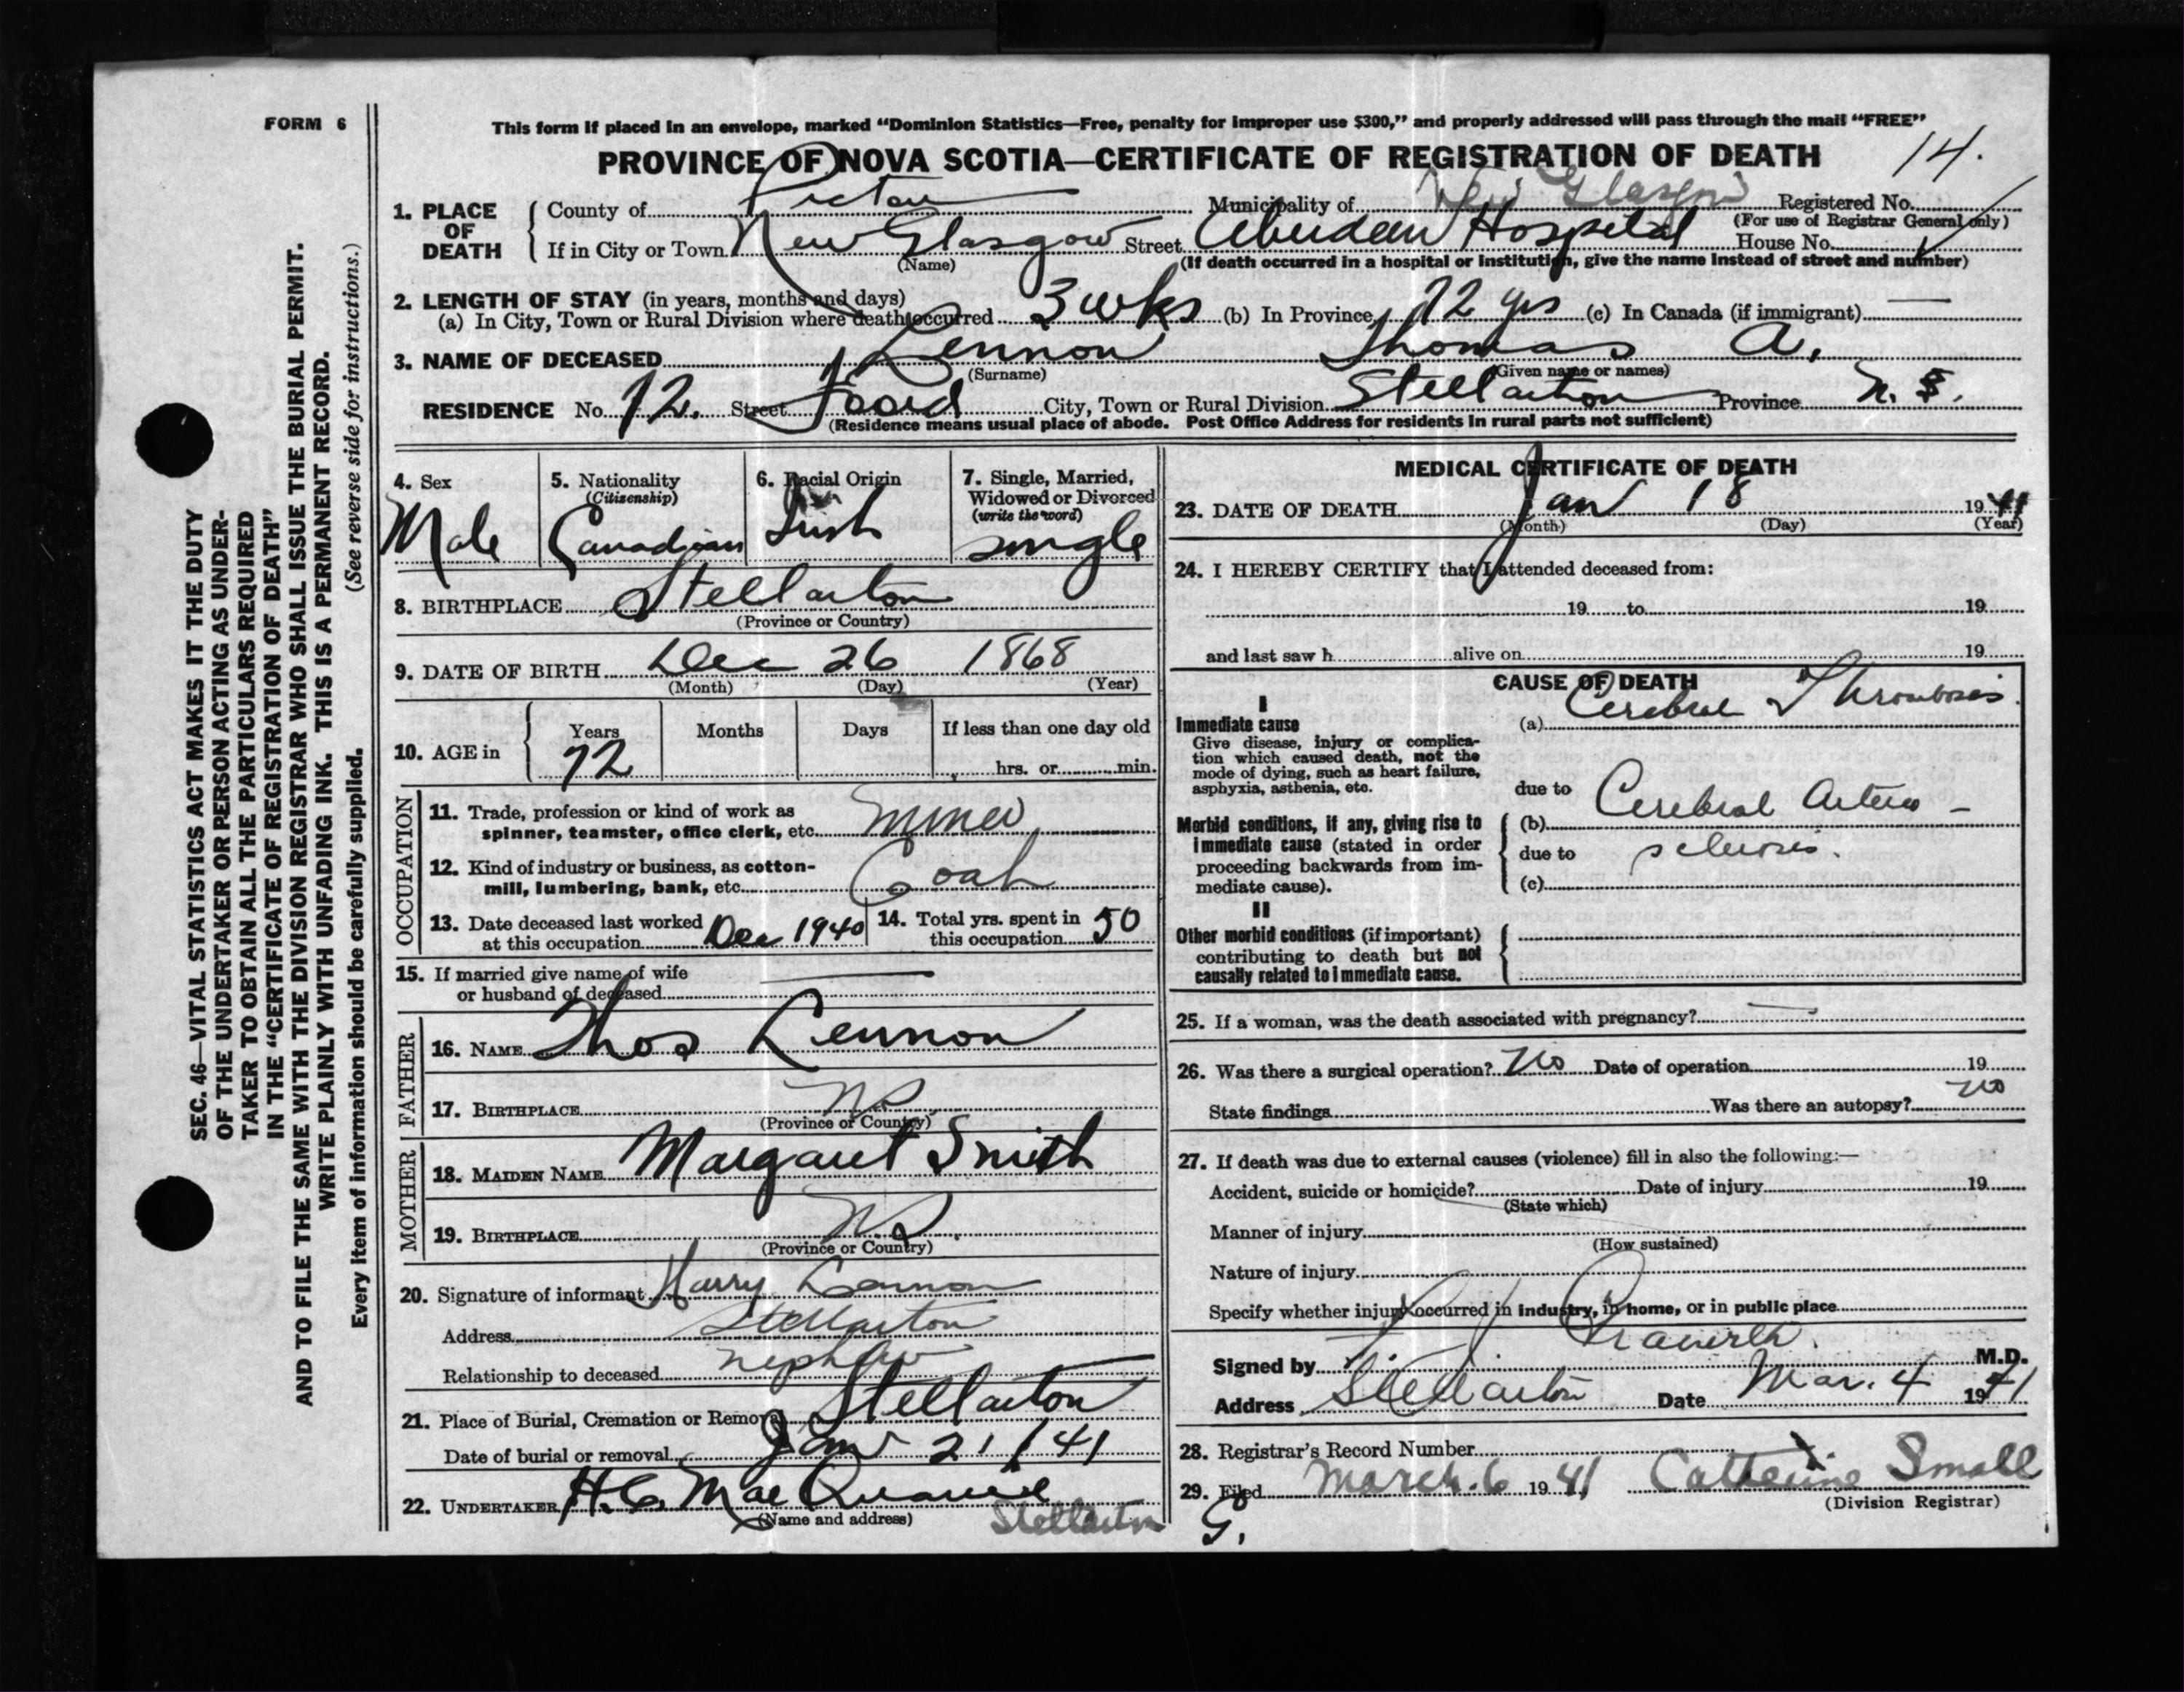 FORM 6
This form if placed in an envelope, marked "Dominion Statistics—Free, penalty for improper use $300," and properly addressed will pass through the mail "FREE"
PROVINCE OF NOVA SCOTIA—CERTIFICATE OF REGISTRATION OF DEATH 14.
SEC. 46—VITAL STATISTICS ACT MAKES IT THE DUTY
OF THE UNDERTAKER OR PERSON ACTING AS UNDER-
TAKER TO OBTAIN ALL THE PARTICULARS REQUIRED
IN THE "CERTIFICATE OF REGISTRATION OF DEATH"
AND TO FILE THE SAME WITH THE DIVISION REGISTRAR WHO SHALL ISSUE THE BURIAL PERMIT.
WRITE PLAINLY WITH UNFADING INK. THIS IS A PERMANENT RECORD.
(See reverse side for instructions.)
Every item of information should be carefully supplied.
1. PLACE OF DEATH
County of Pictou Municipality of New Glasgow Registered No.
(For use of Registrar General only)
If in City or Town New Glasgow Street Aberdeen Hospital House No.
(Name) (If death occurred in a hospital or institution, give the name instead of street and number)
2. LENGTH OF STAY (in years, months and days)
(a) In City, Town or Rural Division where death occurred 3 wks (b) In Province 72 yrs (c) In Canada (if immigrant) —
3. NAME OF DECEASED Lennon Thomas A.
(Surname) (Given name or names)
RESIDENCE No. 72. Street Foord City, Town or Rural Division Stellarton Province N.S.
(Residence means usual place of abode. Post Office Address for residents in rural parts not sufficient)
4. Sex
Male
5. Nationality
(Citizenship)
Canadian
6. Racial Origin
Irish
7. Single, Married,
Widowed or Divorced
(write the word)
single
8. BIRTHPLACE Stellarton
(Province or Country)
9. DATE OF BIRTH Dec 26 1868
(Month) (Day) (Year)
10. AGE in
Years Months Days If less than one day old
72 hrs. or min.
OCCUPATION
11. Trade, profession or kind of work as
spinner, teamster, office clerk, etc. Miner
12. Kind of industry or business, as cotton-
mill, lumbering, bank, etc. Coal
13. Date deceased last worked
at this occupation Dec 1940
14. Total yrs. spent in
this occupation 50
15. If married give name of wife
or husband of deceased —
FATHER
16. NAME Thos Lennon
17. BIRTHPLACE NS
(Province or Country)
MOTHER
18. MAIDEN NAME Margaret Smith
19. BIRTHPLACE NS.
(Province or Country)
20. Signature of informant Harry Lennon
Address Stellarton
Relationship to deceased nephew
21. Place of Burial, Cremation or Removal Stellarton
Date of burial or removal Jan 21/41
22. UNDERTAKER H.C. MacQuarrie
(Name and address) Stellarton
MEDICAL CERTIFICATE OF DEATH
23. DATE OF DEATH Jan 18 1941
(Month) (Day) (Year)
24. I HEREBY CERTIFY that I attended deceased from:
19 to 19
and last saw h alive on 19
CAUSE OF DEATH
I
Immediate cause
Give disease, injury or complica-
tion which caused death, not the
mode of dying, such as heart failure,
asphyxia, asthenia, etc.
(a) Cerebral Thrombosis.
due to
Morbid conditions, if any, giving rise to
immediate cause (stated in order
proceeding backwards from im-
mediate cause).
(b) Cerebral Arterio-
due to sclerosis.
(c)
II
Other morbid conditions (if important)
contributing to death but not
causally related to immediate cause.
25. If a woman, was the death associated with pregnancy? —
26. Was there a surgical operation? no Date of operation 19
State findings Was there an autopsy? no
27. If death was due to external causes (violence) fill in also the following:—
Accident, suicide or homicide? Date of injury 19
(State which)
Manner of injury
(How sustained)
Nature of injury
Specify whether injury occurred in industry, in home, or in public place
Signed by M.D.
Address Stellarton Date Mar. 4 1941
28. Registrar's Record Number
29. Filed March 6 1941 Catherine Small
(Division Registrar)
G.